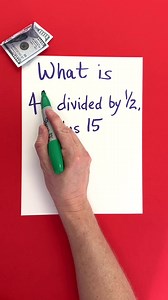 What is
divided by ½,
15